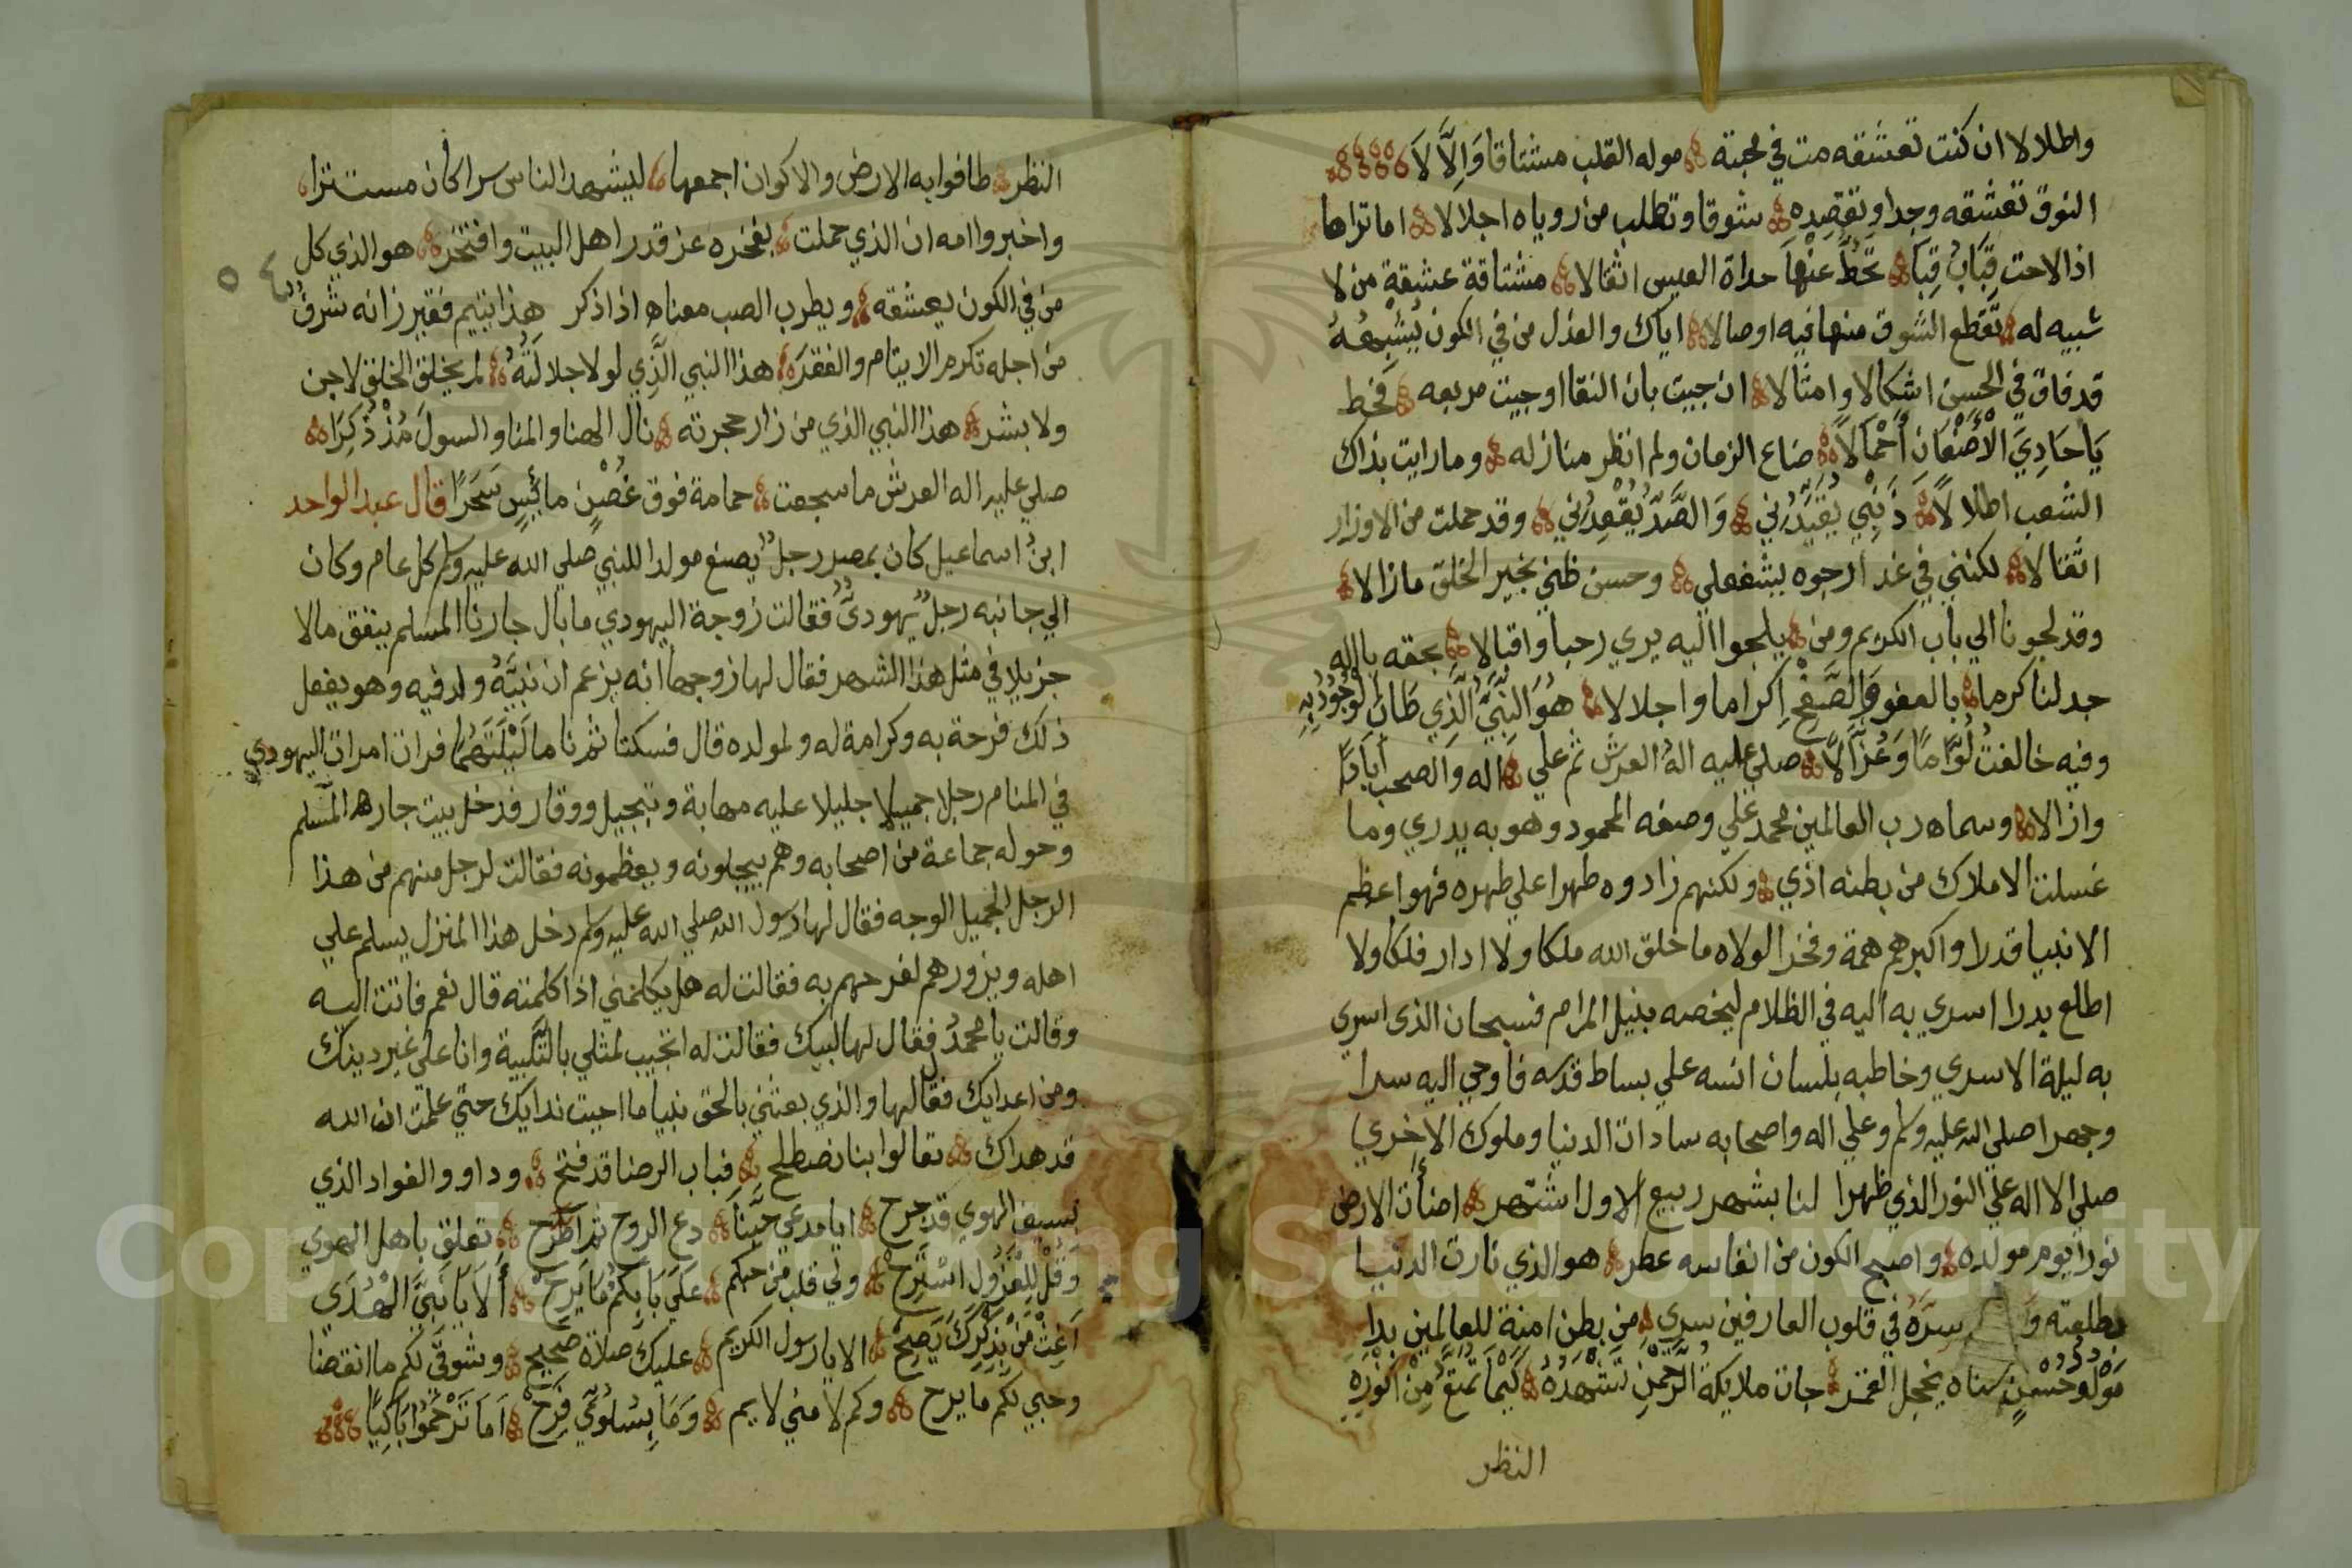 واطلالا ان كنت تعشقه مت في محبته موله القلب مشتاقا وَاِلَّا لَا
النوق تعشقه وجدا وتقصده شوقا وتطلب من روياه اجلالا اما تراها
اذا لاحت قِبَابُ قِبَا تَحُطَّ عَنْهَا حداة العيس اثقالا مشتاقة عشيقة من لا
شبيه له تَقَطع الشوق منها فيه اوصالا اياك والعذل من في الكون يُشْبِهُهُ
قد فاق في الحسن اشكالا وامثالا ان جيت بان النقا اوجيت مربعه فحط
يَا حَادِيَ الْأَضْعَانِ أَحْمَالًا ضاع الزمان ولم انظر منازله وما رايت بذاك
الشعب اطلالًا ذَنبِي يُقَيِّدُنِي وَالصَّدُّ يُقْعِدُنِي وقد حملت من الاوزار
اثقالا لكنني في غد ارجوه يشفعلي وحسن ظني بخير الخلق مازالا
وقد لجونا الي باب الكريم ومن يلجوا اليه يري رحبا واقبالا بحقه يا اله
جد لنا كرما بالعفو وَالصَّفْحِ اكراما واجلالا هُوَ النَّبِيُّ الَّذِي طَابَ الْوُجُودُ بِهِ
وفيه خالفتُ لُوَّامًا وَعُزَّالًا صلي عليه الهُ العرش ثم علي اله والصحب آبادًا
وازالا وسماه رب العالمين محمد علي وصفه المحمود وهو به يدري وما
غسلت الاملاك من بطنه اذي ولكنهم زادوه طهرا علي طهره فهو اعظم
الانبيا قدرا واكبرهم همة وفخرا لولاه ما خلق الله ملكا ولا ادار فلكا ولا
اطلع بدرا اسري به اليه في الظلام ليخصه بنيل المرام فسبحان الذي اسري
به ليلة الاسري وخاطبه بلسان انسه علي بساط قدسه فاوحي اليه سرا
وجهرا صلي الله عليه وسلم وعلي اله واصحابه سادات الدنيا وملوك الاخري
صلي الا اله علي النور الذي ظهرا لنا بشهر ربيع الاول اشتهر اضأت الارض
نورا يوم مولده واصبح الكون من انفاسه عطر هو الذي نارت الدنيا
بطلعته وَ سِرُّهُ في قلوب العارفين سري من بطن امنة للعالمين بدا
مَوْلُودُ حُسْنٍ سناه يخجل القمر جات ملايكة الرَّحْمٰنِ تَشْهَدُهُ كَيْمَا تَمَتَّعُ مِنْ انْوَارِهِ
النظر
النظر طافوا به الارض والاكوان اجمعها ليشهد الناس سرا كان مستترا
واخبروا امه ان الذي حملت بفخره عز قدر اهل البيت وافتخر هو الذي كل
من في الكون يعشقه ويطرب الصب معناه اذا ذكر هذا يتيم فقير زانه شرفٌ
من اجله تكرم الايتام والفقرَا هذا النبي الَّذِي لولا جلالَتُهُ لم يخلق الخلق لا جن
ولا بشر هذا النبي الذي من زار حجرته نال الهنا والمنا والسولَ مُذْ ذُكِرَا
صلي عليه اله العرش ما سجعت حمامة فوق غُصْنٍ مائِسٍ سَحَرًا قال عبد الواحد
ابنُ اسماعيل كان بمصر رجلٌ يصنع مولدا للنبي صلي الله عليه وسلم كل عام وكان
الي جانبه رجلٌ يهوديٌّ فقالت زوجة اليهودي ما بال جارنا المسلم ينفق مالا
جزيلا في مثل هذا الشهر فقال لها زوجها انه يزعم ان نبيَّهُ ولد فيه وهو يفعل
ذلك فرحة به وكرامة له ولمولده قال فسكتا ثم ناما لَيْلَتَهُمَا فرات امرات اليهودي
في المنام رجلا جميلا جليلا عليه مهابة وتبجيل ووقار قد دخل بيت جاره المسلم
وحوله جماعة من اصحابه وهم يبجلونه ويعظمونه فقالت لرجل منهم من هذا
الرجل الجميل الوجه فقال لها رسول الله صلي الله عليه وسلم دخل هذا المنزل يسلم علي
اهله ويزورهم لفرحهم به فقالت له هل يكلمني اذا كلمته قال نعم فاتت اليه
وقالت يا محمدُ فقال لها لبيك فقالت له اتجيب لمثلي بالتلبية وانا علي غير دينك
ومن اعدايك فقال لها والذي بعثني بالحق نبيا ما اجبت ندايك حتي علمت ان الله
قد هداك تعالوا بنا نصطلح فباب الرضا قد فتح وداوو الفواد الذي
بسيف الهوي قد جرح ايا مدعي حبنا دع الروح ثم اطَّرح تعلق باهل الهوي
وَقُلْ لِلْعَزُولِ اسْتَرِحْ ولي قلب من حبكم عَلَي بَابِكُم مَا يَرِحْ أَلَا يَا نَبِيَّ الْهُدَي
اَغِثْ مَنْ بِذِكْرِكَ يَصِحْ الا يا رسول الكريم عليك صلاة تصحيح وشوقي لكم ما انقضا
وحبي لكم ما يرح وكم لامني لايم وَمَا بِسُلُوِّي فَرِحْ اَمَا تَرْحَمُوا بَاكِيًا